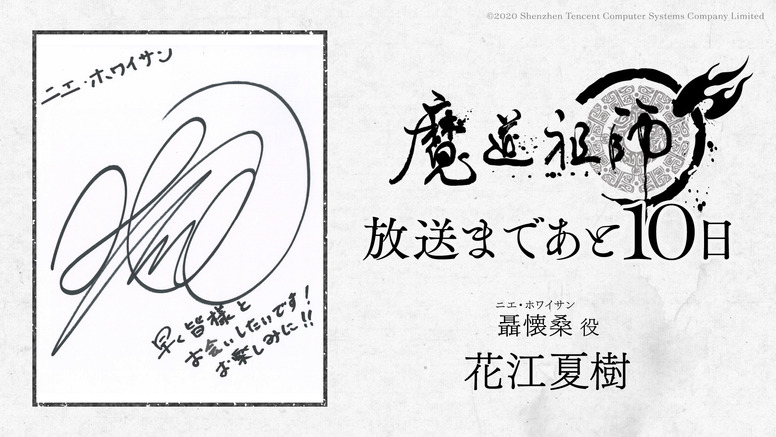 ©2020 Shenzhen Tencent Computer Systems Company Limited
ニエ・ホワイサン
早く皆様と
お会いしたいです!
お楽しみに!!
魔道祖師
放送まであと10日
ニエ・ホワイサン
聶懐桑 役
花江夏樹